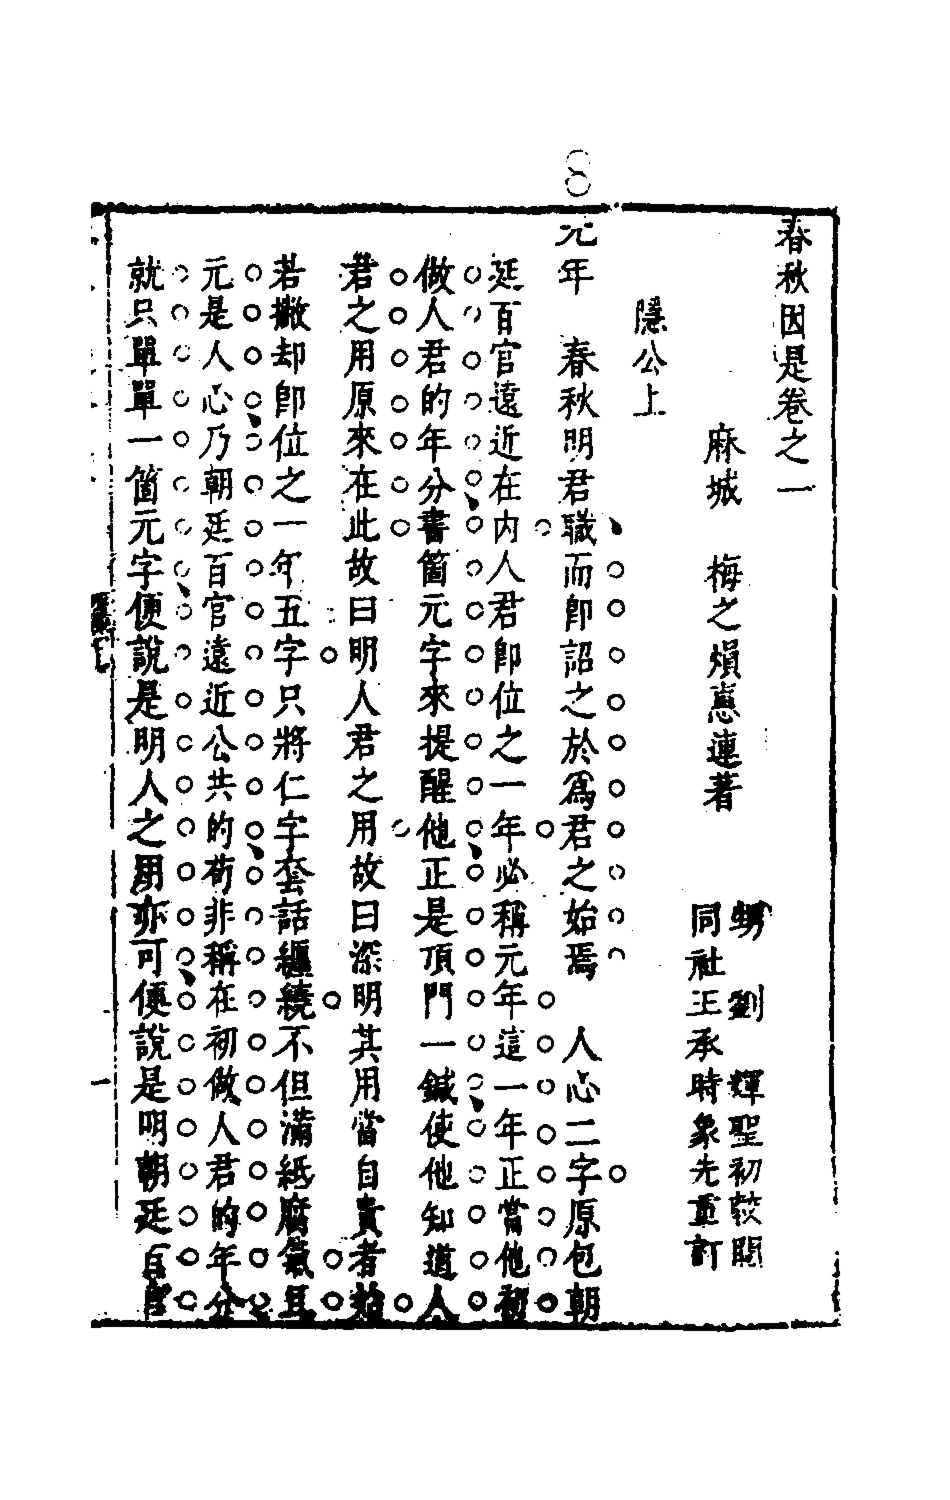 春秋因是卷之一
麻城　梅之熉惠連著
甥　劉　輝聖初較閱
同社王承時象先重訂
隱公上
元年　春秋明君職而卽詔之於爲君之始焉　人心二字原包朝
廷百官遠近在內人君卽位之一年必稱元年這一年正當他初
做人君的年分書箇元字來提醒他正是頂門一鍼使他知道人
君之用原來在此故曰明人君之用故曰深明其用當自貴者始
若撇却卽位之一年五字只將仁字套話纏繞不但滿紙腐氣且
元是人心乃朝廷百官遠近公共的苟非稱在初做人君的年分
就只單單一箇元字便說是明人之用亦可便說是明朝廷百官
一